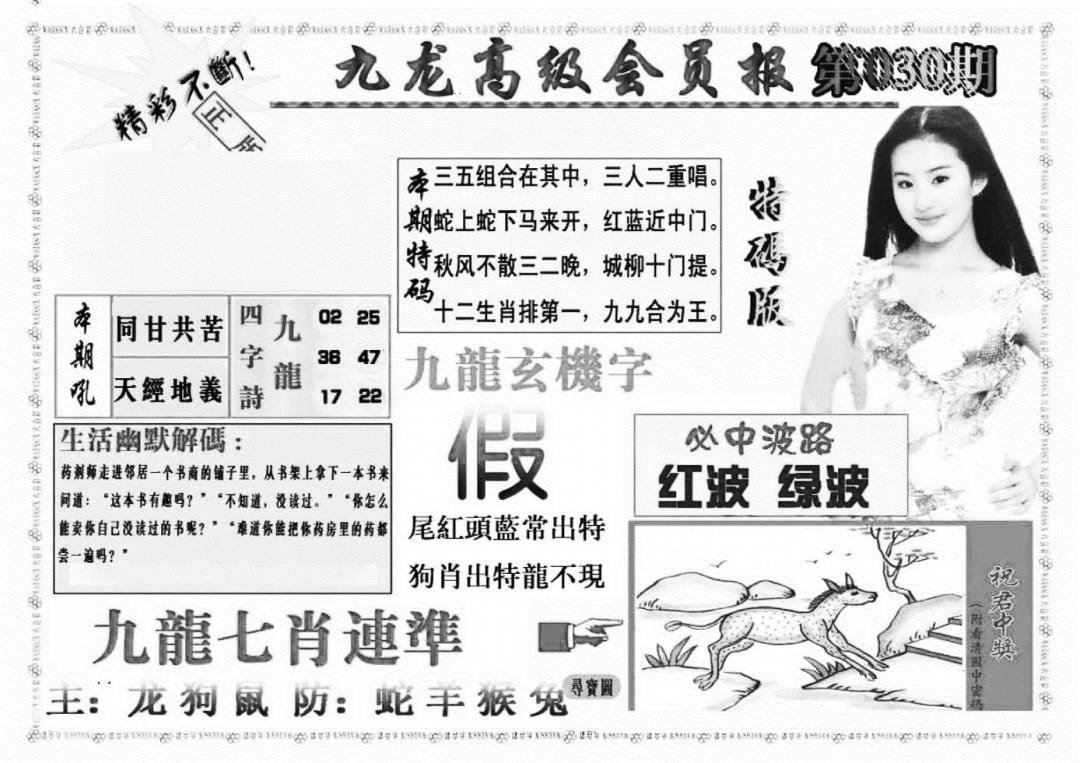 九龙高级会员报 第030期
精彩不斷!
正版
本期特码
三五组合在其中，三人二重唱。
蛇上蛇下马来开，红蓝近中门。
秋风不散三二晚，城柳十门提。
十二生肖排第一，九九合为王。
特碼版
本期吼
同甘共苦
天經地義
四字詩
九龍
02 25
36 47
17 22
九龍玄機字
假
尾紅頭藍常出特
狗肖出特龍不現
生活幽默解碼：
药剂师走进邻居一个书商的铺子里，从书架上拿下一本书来
问道：“这本书有趣吗？”“不知道，没读过。”“你怎么
能卖你自己没读过的书呢？”“难道你能把你药房里的药都
尝一遍吗？”
必中波路
红波 绿波
九龍七肖連準
主：龙狗鼠 防：蛇羊猴兔
尋寶圖
祝君中獎
（附看清圖中密碼